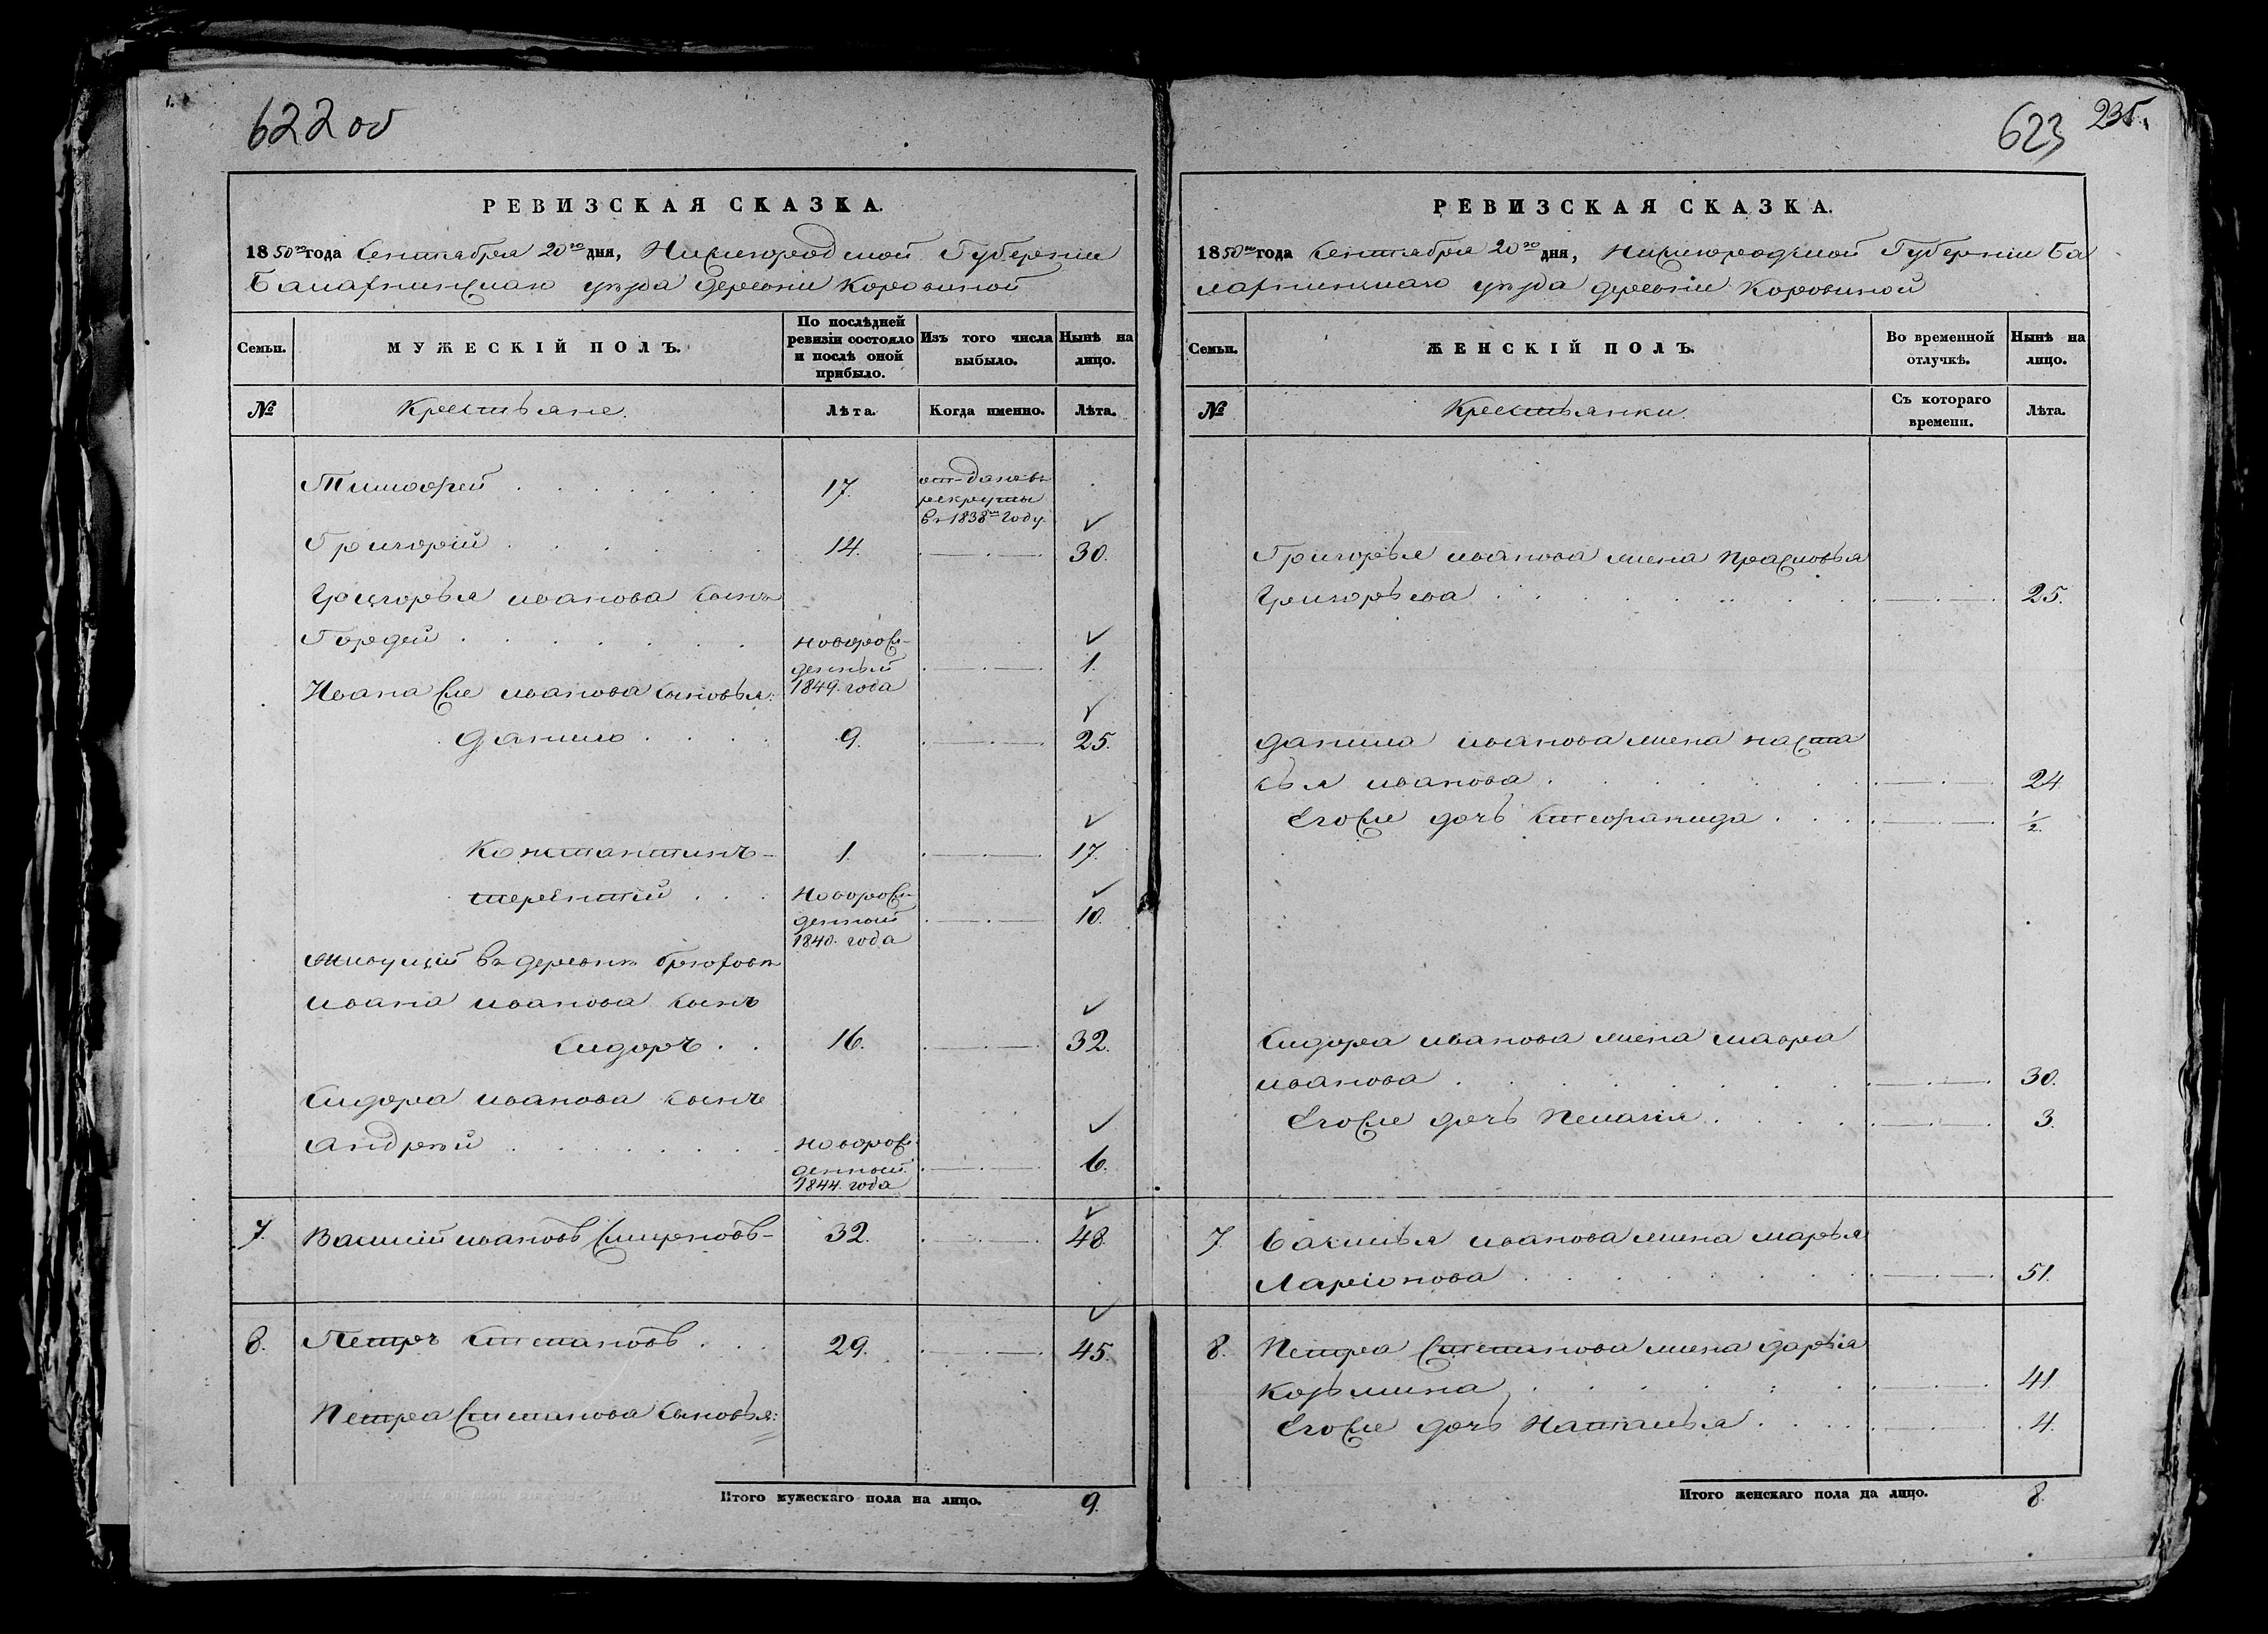 622 об
РЕВИЗСКАЯ СКАЗКА.
1850го года Сентября 20го дня, Нижегородской Губернии
Балахнинскаго уѣзда деревни Коровиной
Семьи.
МУЖЕСКІЙ ПОЛЪ.
По послѣдней ревизіи состояло и послѣ оной прибыло.
Изъ того числа выбыло.
Нынѣ на лицо.
№
Крестьяне.
Лѣта.
Когда именно.
Лѣта.
Тимофей 17. отданъ въ
рекруты
въ 1838мъ году.
Григорій 14. 30.
Григорья иванова сынъ
Гордей новорож-
денный 1.
1849. года
Ивана же иванова сыновья:
Данило 9. 25.
Константинъ 1. 17.
терентий новорож-
денный 10.
1840. года
живущій въ деревнѣ брюховѣ
ивана иванова сынъ
Сидоръ 16. 32.
Сидора иванова сынъ
андрей новорож-
денный 6.
1844. года
7. Василій ивановъ Смирновъ 32. 48.
8. Петръ Степановъ 29. 45.
Петра Степанова сыновья:
Итого мужескаго пола на лицо. 9.
623 235.
РЕВИЗСКАЯ СКАЗКА.
1850го года Сентября 20го дня, Нижегородской Губерніи Ба
лахнинскаго уѣзда деревни Коровиной
Семьи.
ЖЕНСКІЙ ПОЛЪ.
Во временной отлучкѣ.
Нынѣ на лицо.
№
Крестьянки.
Съ котораго времени.
Лѣта.
Григорья иванова жена Прасковья
Григорьева 25.
данила иванова жена наста
сья иванова 24
Его же дочь Стефанида 1/2.
Сидора иванова жена мавра
иванова 30.
Его же дочь Пелагія 3.
7. Василья иванова жена марья
Ларіонова 51.
8. Петра Степанова жена дарья
Козьмина 41
Его же дочь Наталья 4.
Итого женскаго пола на лицо. 8.